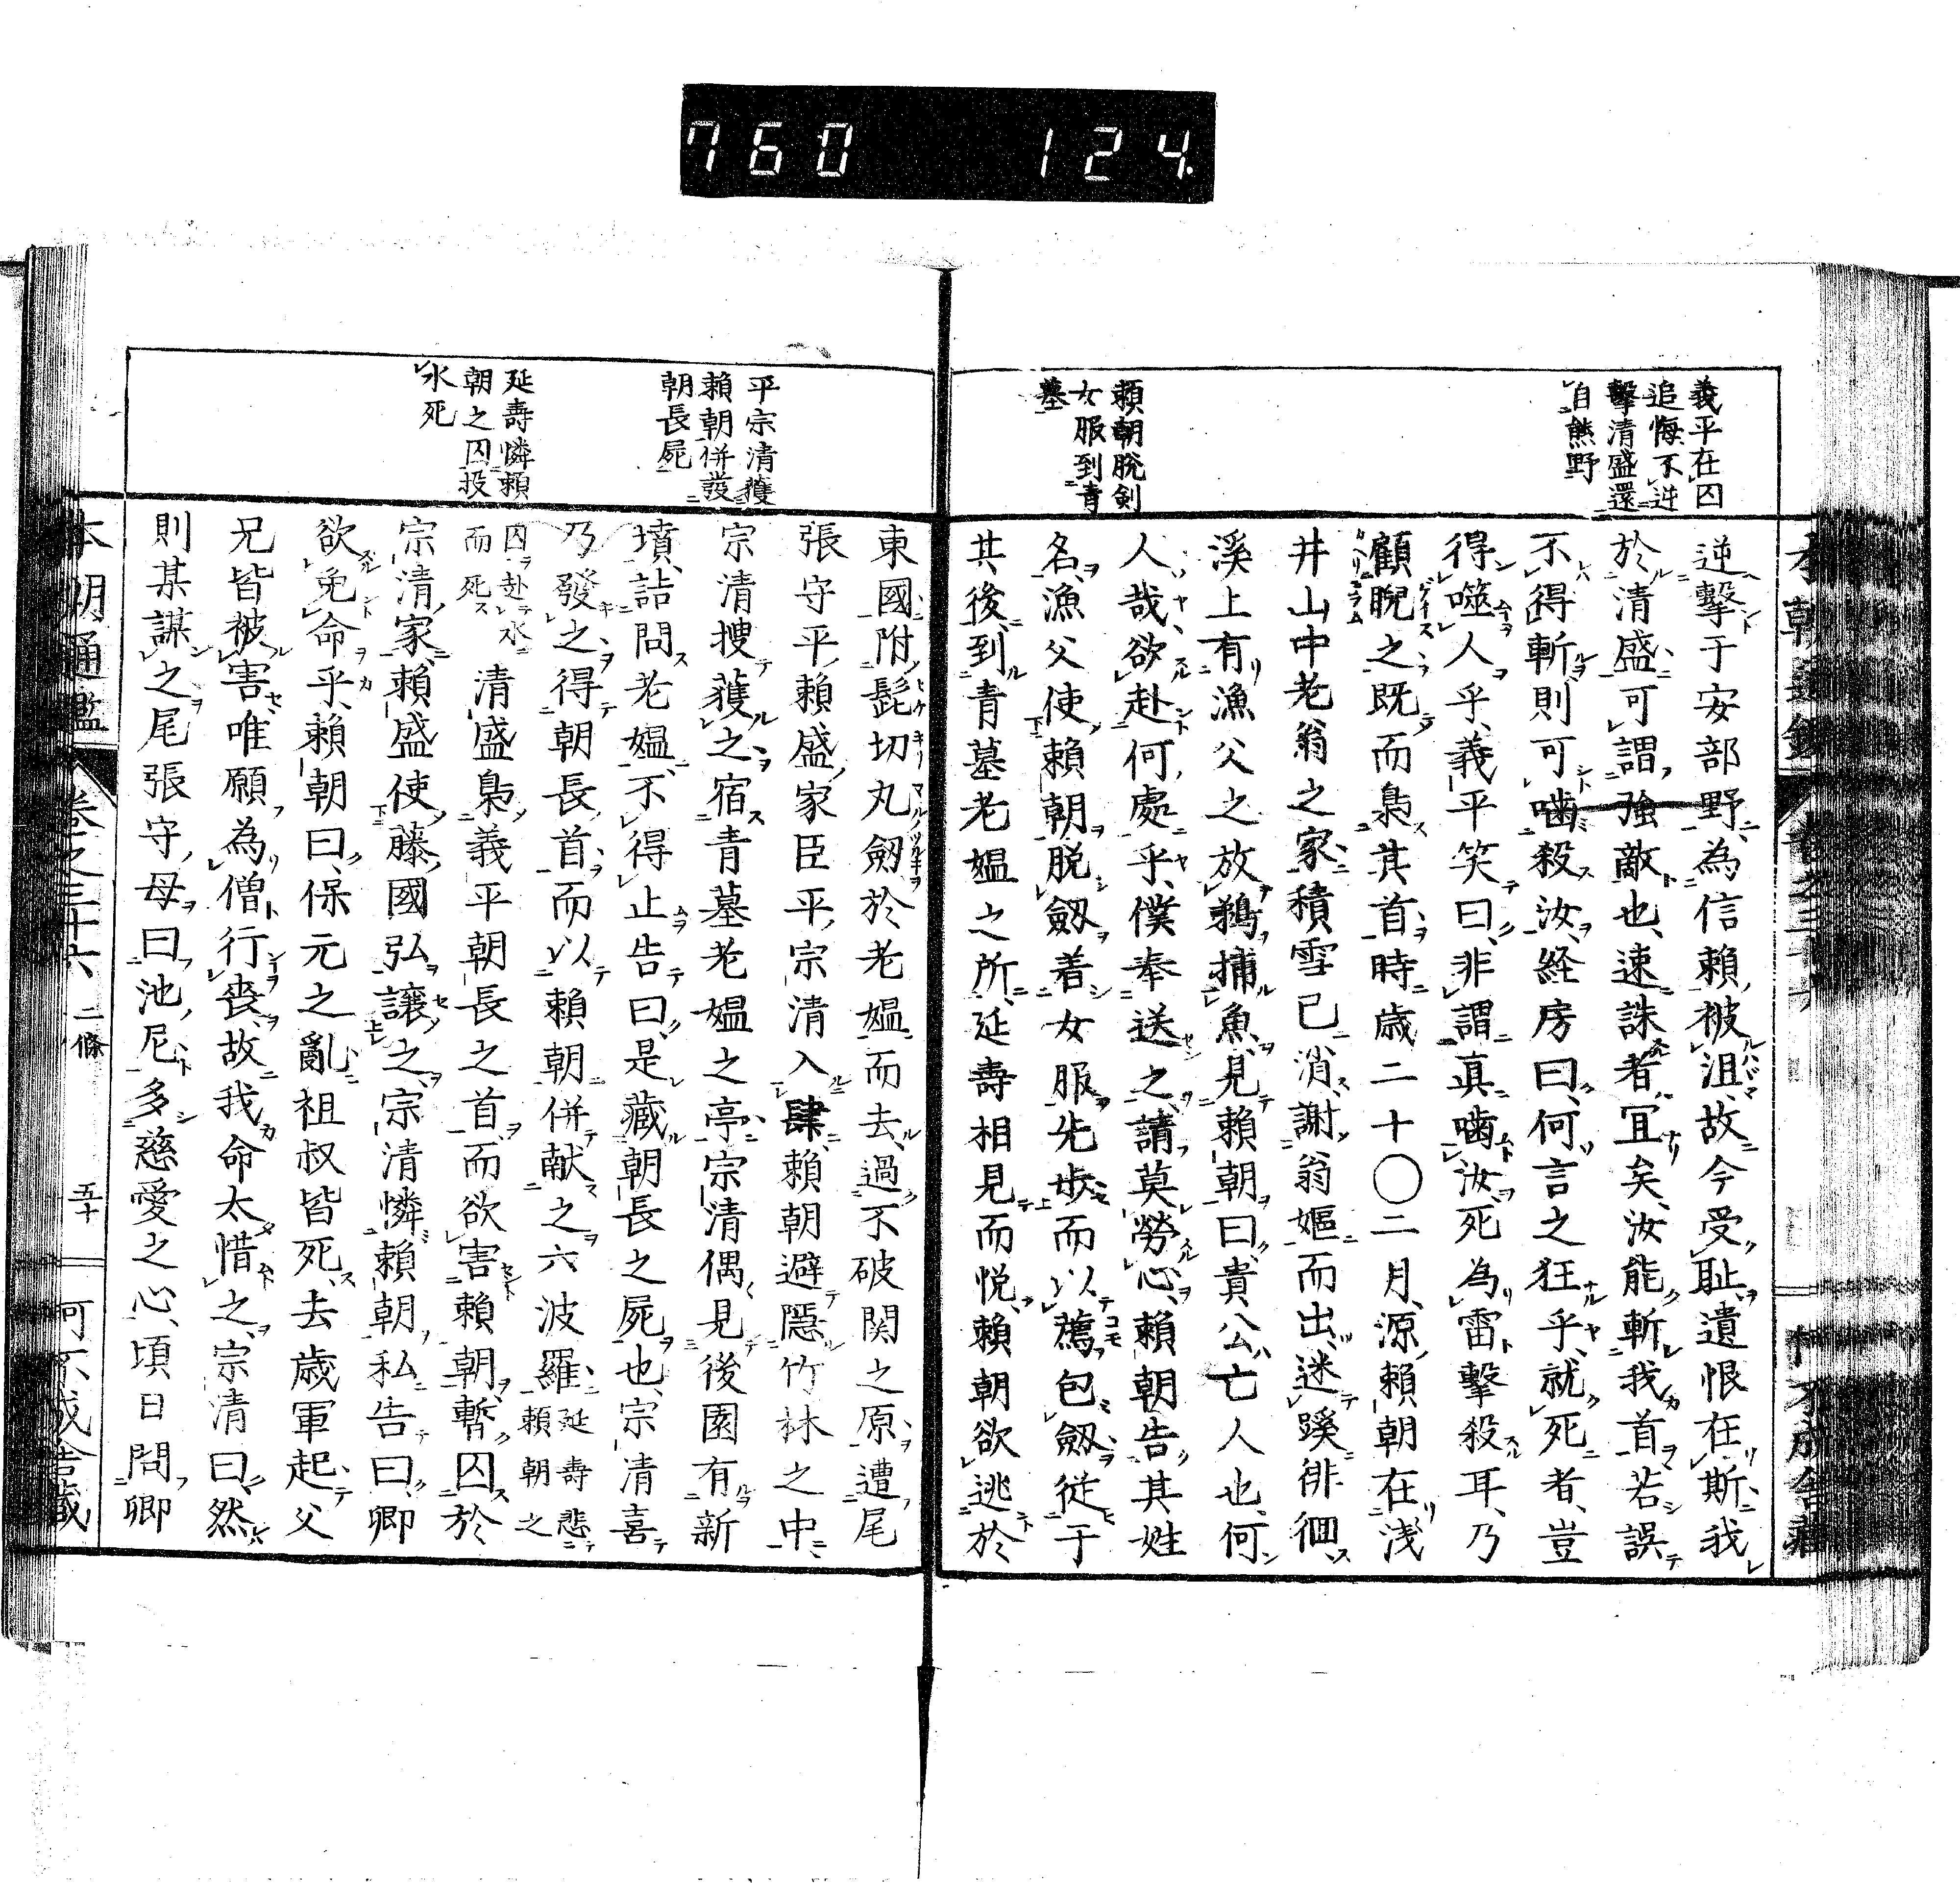 760 124
義平在囚
追悔不逆
擊清盛還
自熊野
頼朝脫剣
女服到青
墓
逆擊于安部野為信賴被沮故今受恥遺恨在斯我
於清盛可謂強敵也速誅者宜矣汝能斬我首若誤
不得斬則可嚙殺汝経房曰何言之狂乎就死者豈
得噬人乎義平笑曰非謂真嚙汝死為雷擊殺耳乃
顧睨之既而梟其首時歳二十〇二月源賴朝在浅
井山中老翁之家積雪已消謝翁嫗而出迷蹊徘徊
溪上有漁父之放鵜捕魚見賴朝曰貴公亡人也何
人哉欲赴何處乎僕奉送之請莫勞心賴朝告其姓
名漁父使賴朝脱劔着女服先歩而以薦包劔従于
其後到青墓老媼之所延壽相見而悦賴朝欲逃於
平宗清獲
賴朝併發
朝長屍
延壽憐賴
朝之囚投
水死
東國附髭切丸劔於老媼而去過不破関之原遭尾
張守平賴盛家臣平宗清入肆賴朝避隱竹林之中
宗清搜獲之宿青墓老媼之亭宗清偶見後園有新
墳詰問老媼不得止告曰是藏朝長之屍也宗清喜
乃發之得朝長首而以賴朝併献之六波羅延壽悲賴朝之
囚赴水而死清盛梟義平朝長之首而欲害賴朝暫囚於
宗清家賴盛使藤國弘讓之宗清憐賴朝私告曰卿
欲免命乎賴朝曰保元之亂祖叔皆死去歳軍起父
兄皆被害唯願為僧行喪故我命太惜之宗清曰然
則某謀之尾張守母曰池尼多慈愛之心頃日問卿
本朝通鑑 卷之三十六 二條 五十 可不成舎藏